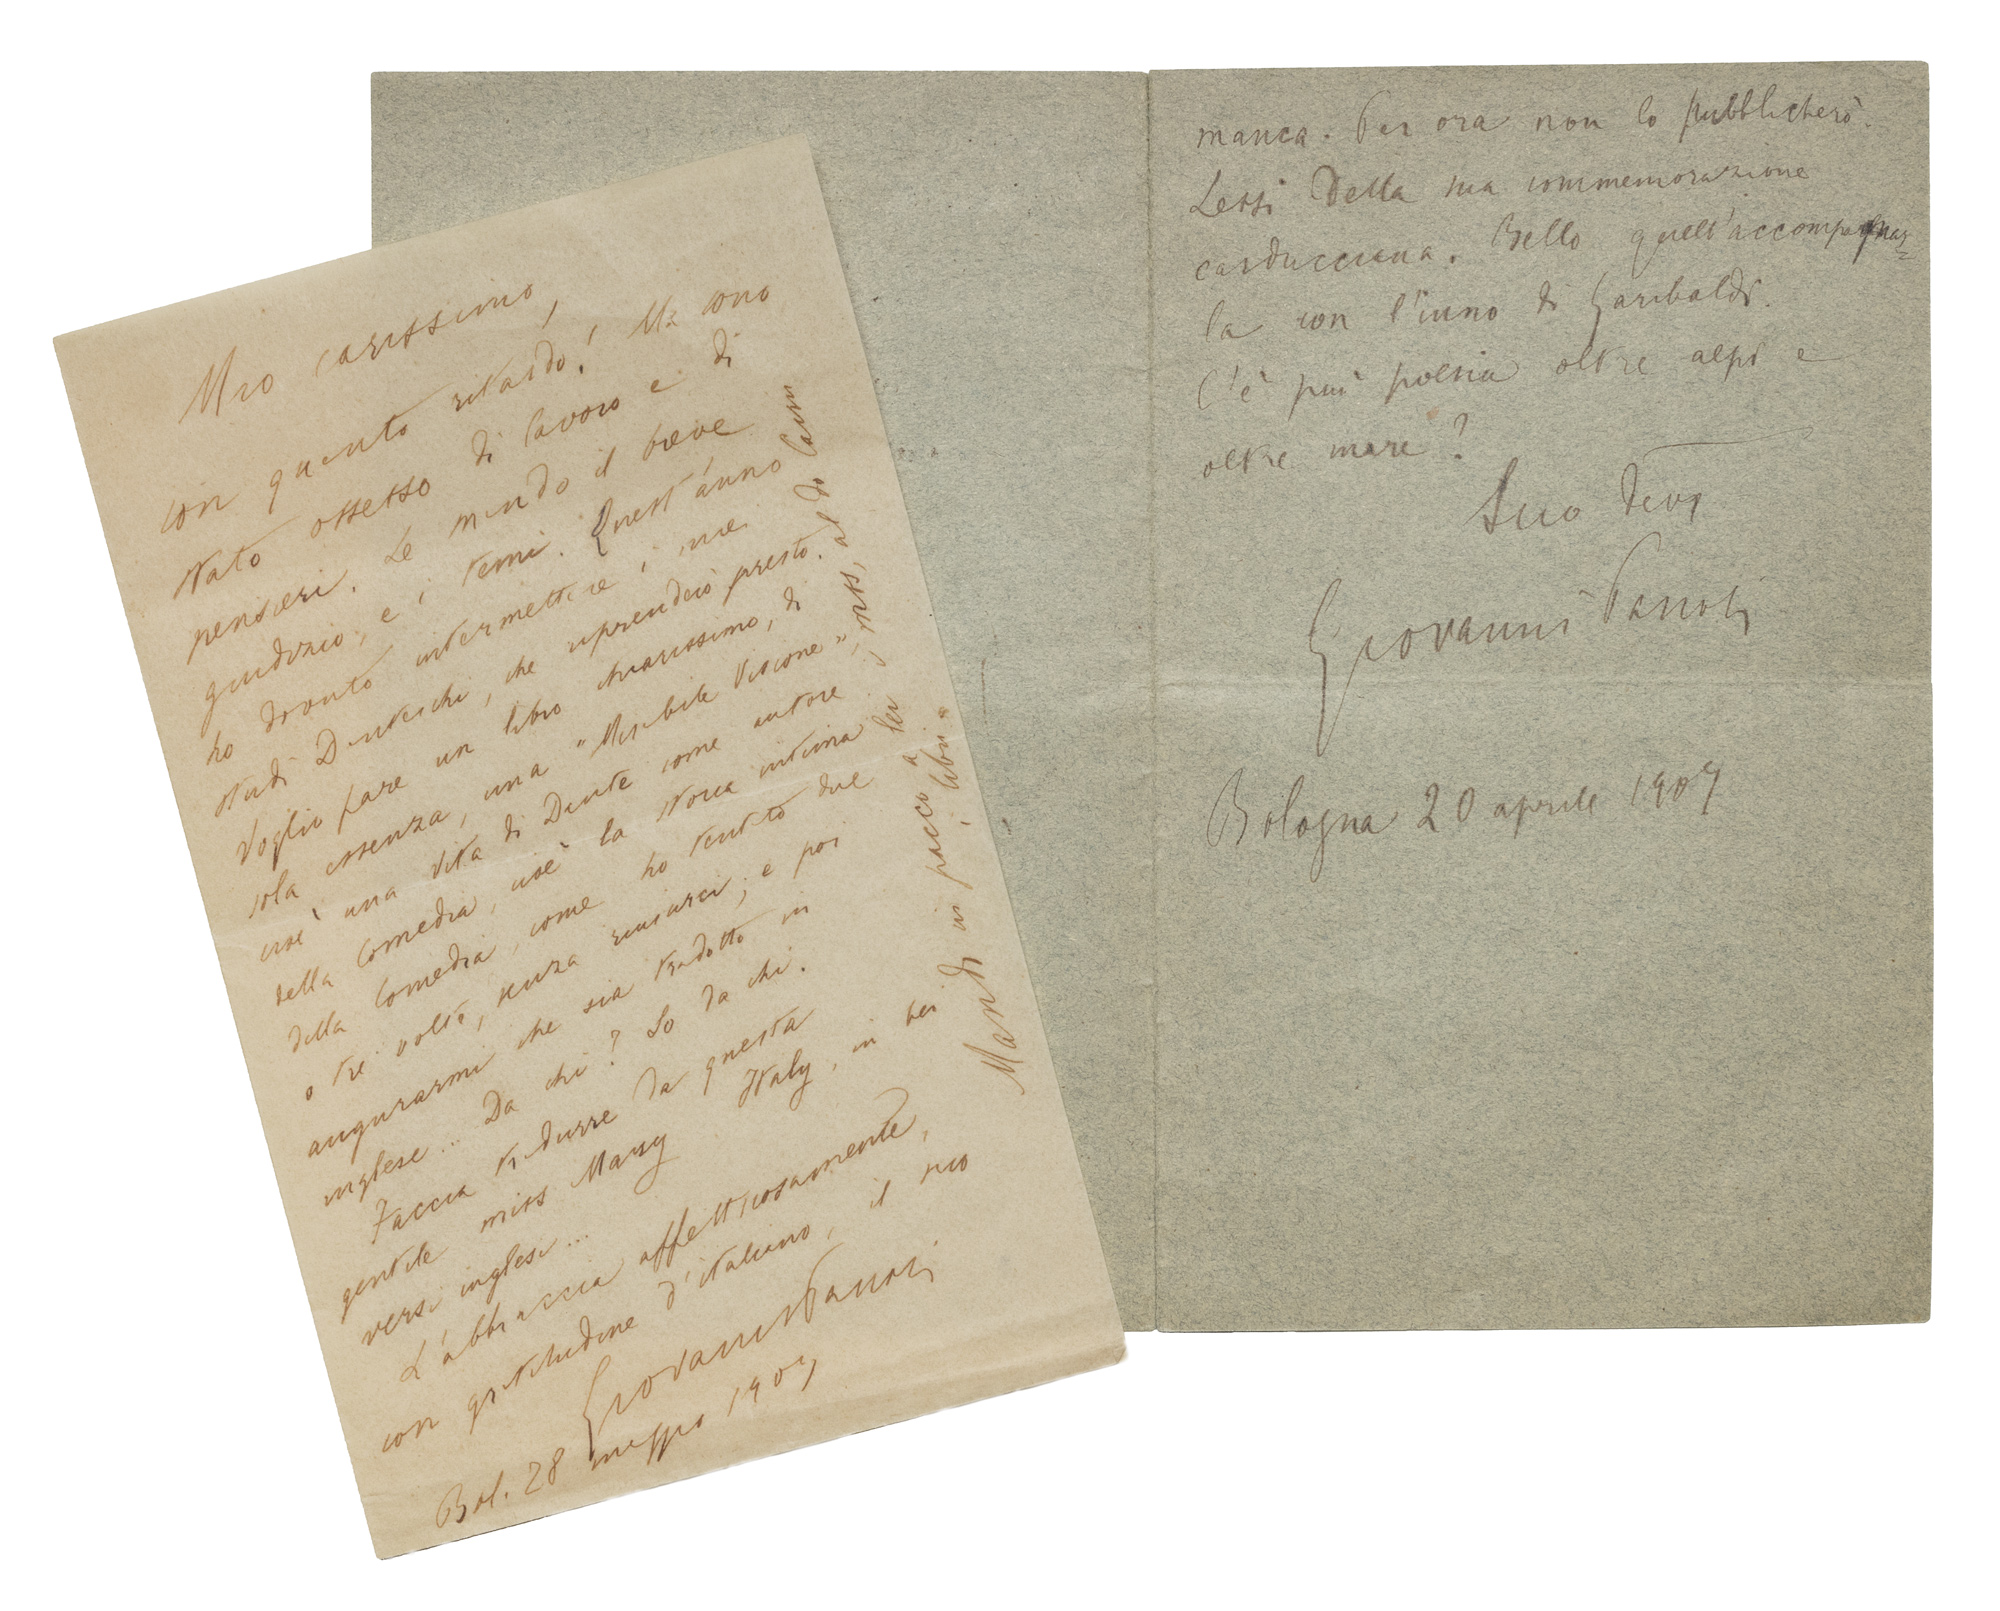 Mio carissimo,
con quanto ritardo! Ma sono
stato ossesso di lavoro e di
pensieri. Le mando il breve
giudizio, e i temi. Quest'anno
ho dovuto intermettere i miei
studi Danteschi, che riprenderò presto.
Voglio fare un libro chiarissimo, di
sola essenza, una "Mirabile Visione",
cioè una vita di Dante come autore
della Comedia, cioè la storia intima
della Comedia, come ho tentato due
o tre volte, senza riuscirci; e poi
augurarmi che sia tradotto in
inglese... Da chi? So da chi.
Faccia tradurre da questa
gentile miss Mary Italy, in bei
versi inglesi...
L'abbraccia affettuosamente,
con gratitudine d'italiano, il suo
Giovanni Pascoli
Bol. 28 maggio 1907
Mando in pacco a lei i libri.
miss, al
manca. Per ora non lo pubblicherò.
Lessi della sua commemorazione
carducciana. Bello quell'accompagnar=
la con l'inno di Garibaldi.
C'è più poesia oltre alpi e
oltre mare?
Suo dev
Giovanni Pascoli
Bologna 20 aprile 1907